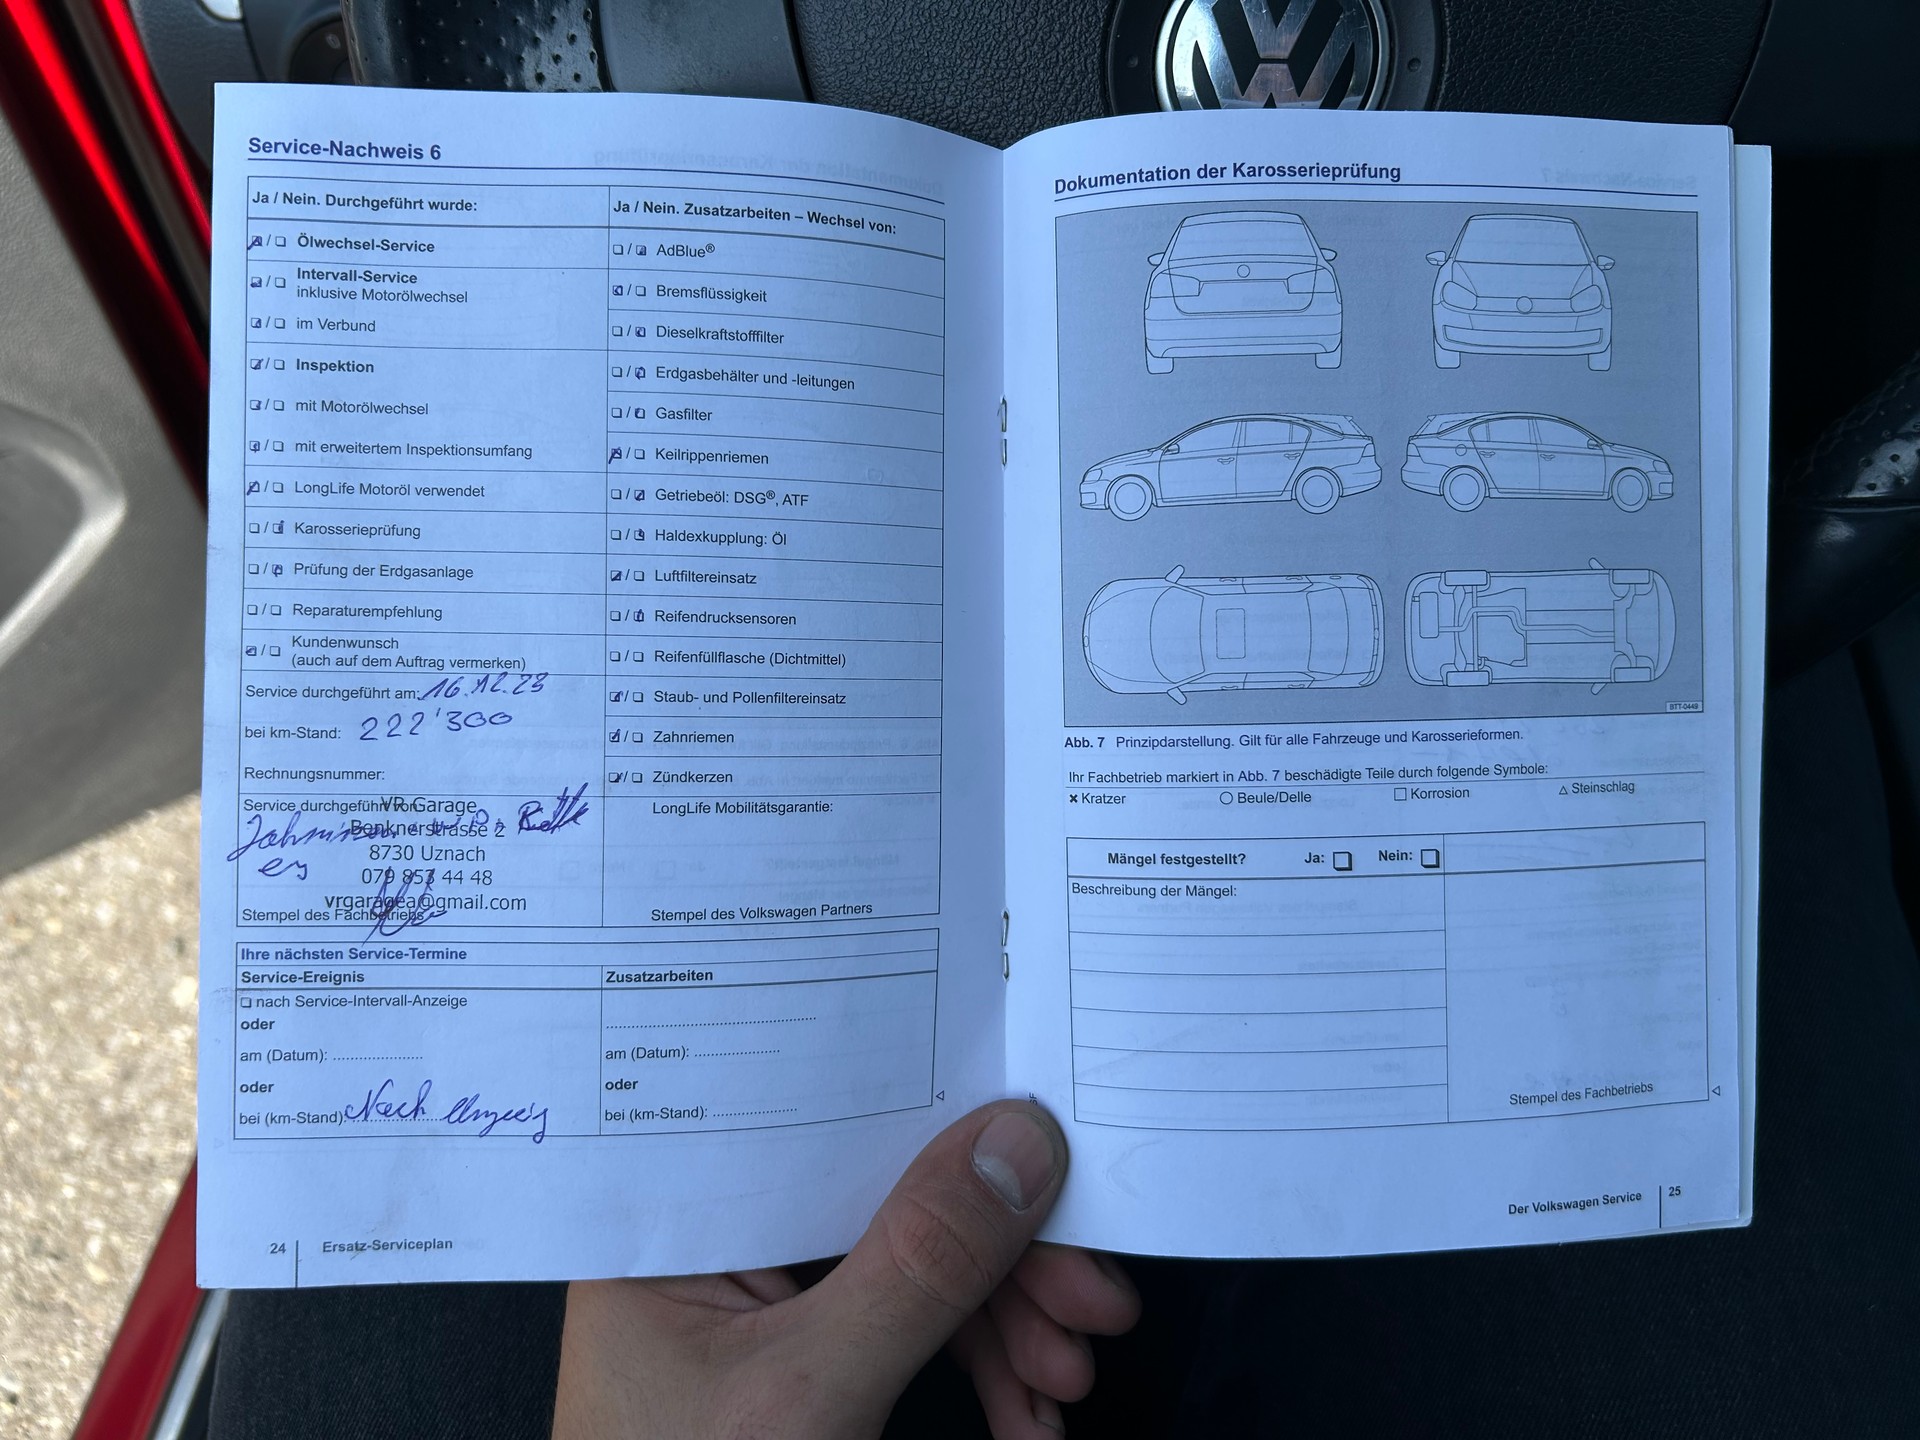 Service-Nachweis 6
Ja / Nein. Durchgeführt wurde:
Ölwechsel-Service
Intervall-Service
inklusive Motorölwechsel
im Verbund
Inspektion
mit Motorölwechsel
mit erweitertem Inspektionsumfang
LongLife Motoröl verwendet
Karosserieprüfung
Prüfung der Erdgasanlage
Reparaturempfehlung
Kundenwunsch
(auch auf dem Auftrag vermerken)
Service durchgeführt am: 16.12.23
bei km-Stand: 222'300
Rechnungsnummer:
Service durchgeführt von:
VR Garage
Benknerstrasse 2
8730 Uznach
079 853 44 48
vrgaragea@gmail.com
Stempel des Fachbetriebs
Ja / Nein. Zusatzarbeiten – Wechsel von:
AdBlue®
Bremsflüssigkeit
Dieselkraftstofffilter
Erdgasbehälter und -leitungen
Gasfilter
Keilrippenriemen
Getriebeöl: DSG®, ATF
Haldexkupplung: Öl
Luftfiltereinsatz
Reifendrucksensoren
Reifenfüllflasche (Dichtmittel)
Staub- und Pollenfiltereinsatz
Zahnriemen
Zündkerzen
LongLife Mobilitätsgarantie:
Stempel des Volkswagen Partners
Ihre nächsten Service-Termine
Service-Ereignis
nach Service-Intervall-Anzeige
oder
am (Datum):
oder
bei (km-Stand): Nach
Zusatzarbeiten
am (Datum):
oder
bei (km-Stand):
24 Ersatz-Serviceplan
Dokumentation der Karosserieprüfung
BTT-0449
Abb. 7 Prinzipdarstellung. Gilt für alle Fahrzeuge und Karosserieformen.
Ihr Fachbetrieb markiert in Abb. 7 beschädigte Teile durch folgende Symbole:
× Kratzer ○ Beule/Delle □ Korrosion △ Steinschlag
Mängel festgestellt? Ja: Nein:
Beschreibung der Mängel:
Stempel des Fachbetriebs
Der Volkswagen Service 25